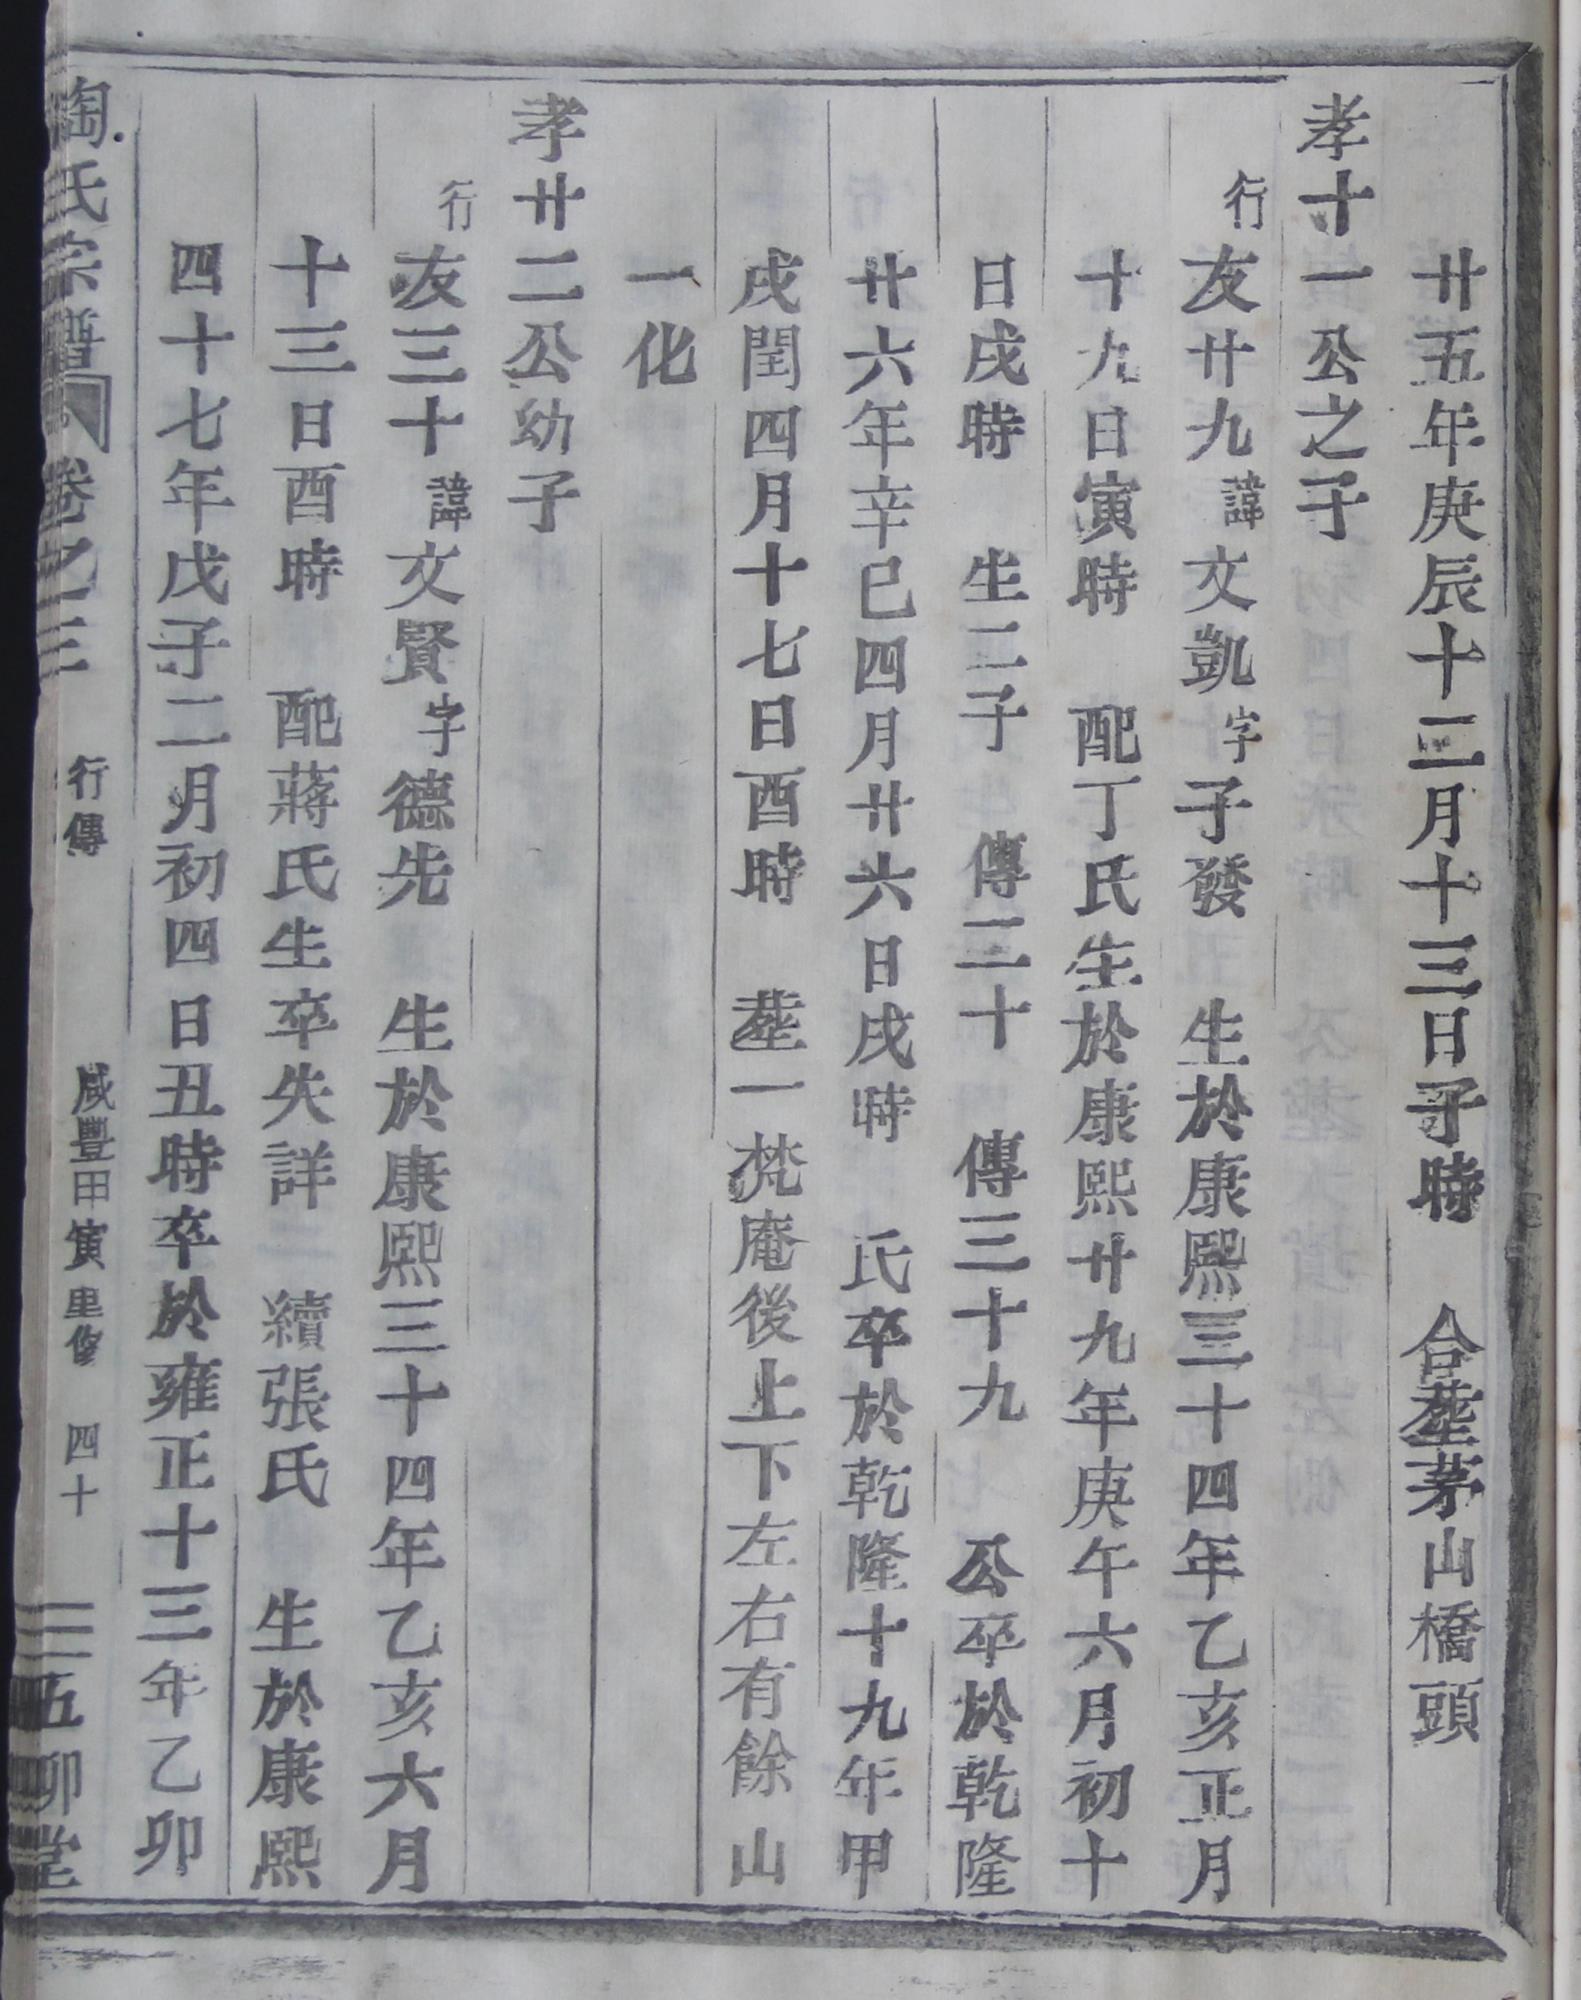 廿五年庚辰十二月十三日子時　合塟茅山橋頭
孝十一公之子
行友廿九諱文凱字子發　生於康熙三十四年乙亥正月
十九日寅時　配丁氏生於康熙廿九年庚午六月初十
日戌時　生二子　傳二十　傳三十九　公卒於乾隆
廿六年辛巳四月廿六日戌時　氏卒於乾隆十九年甲
戌閏四月十七日酉時　塟一梵庵後上下左右有餘山
一化
孝廿二公幼子
行友三十諱文賢字德先　生於康熙三十四年乙亥六月
十三日酉時　配蔣氏生卒失詳　續張氏　生於康熙
四十七年戊子二月初四日丑時卒於雍正十三年乙卯
陶氏宗譜　卷之三　行傳　咸豐甲寅重修　四十　五柳堂